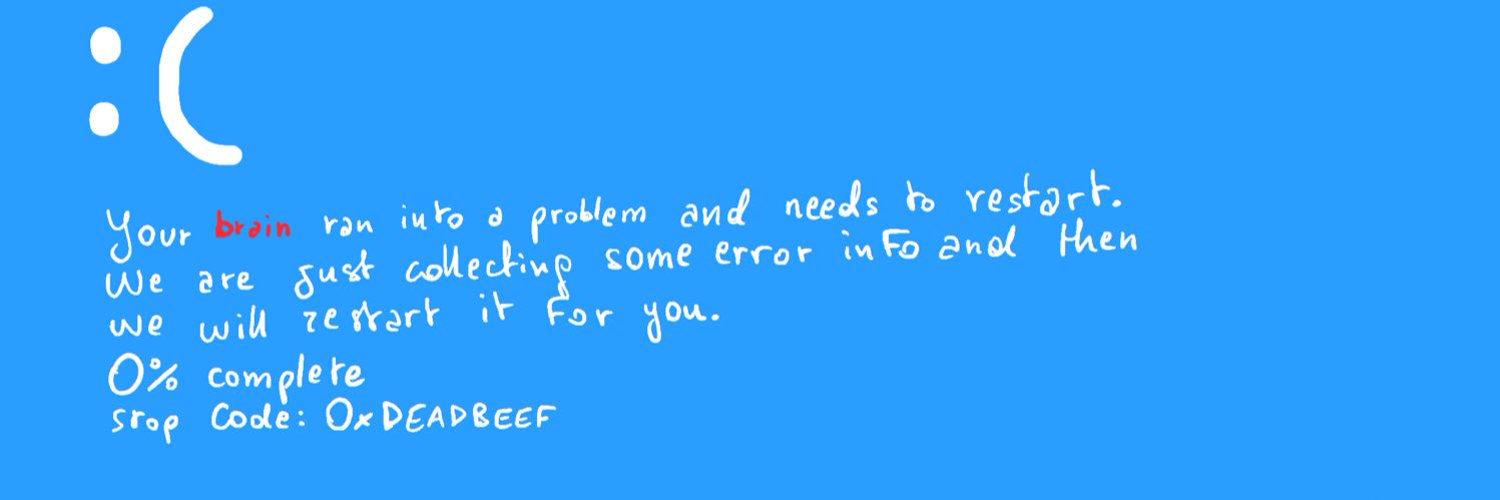 :(
Your brain ran into a problem and needs to restart.
We are just collecting some error info and then
we will restart it for you.
0% complete
stop Code: 0xDEADBEEF